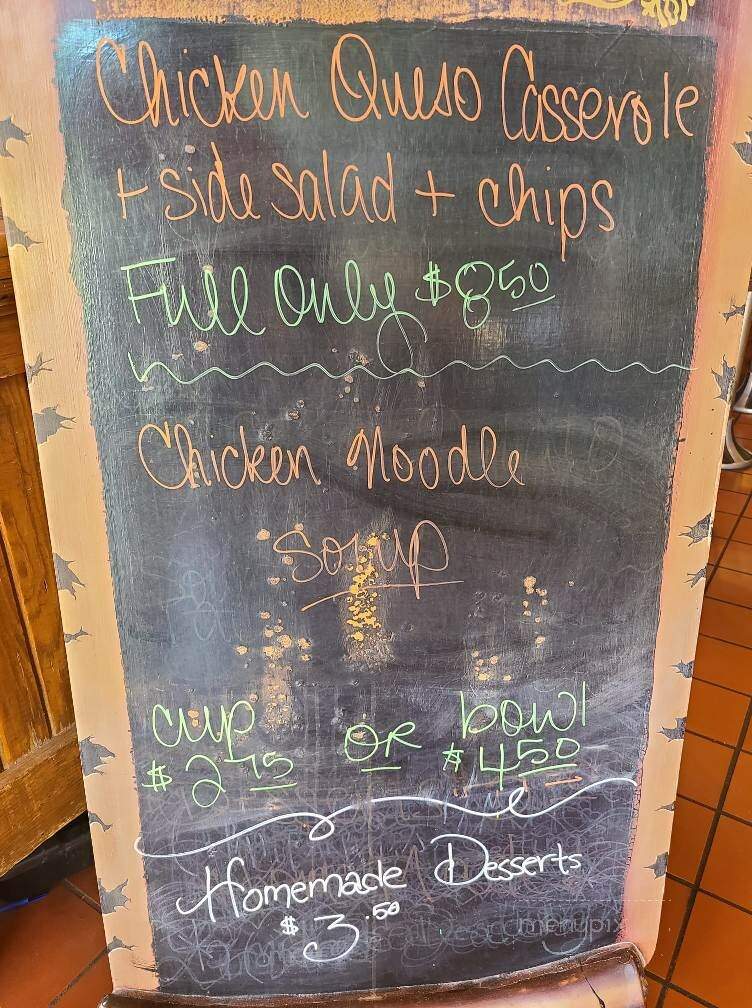 Chicken Queso Casserole
+ side salad + chips
Full Only $8 50
Chicken Noodle
Soup
cup OR bowl
$2 75 $4 50
Homemade Desserts
$3.50
menupix